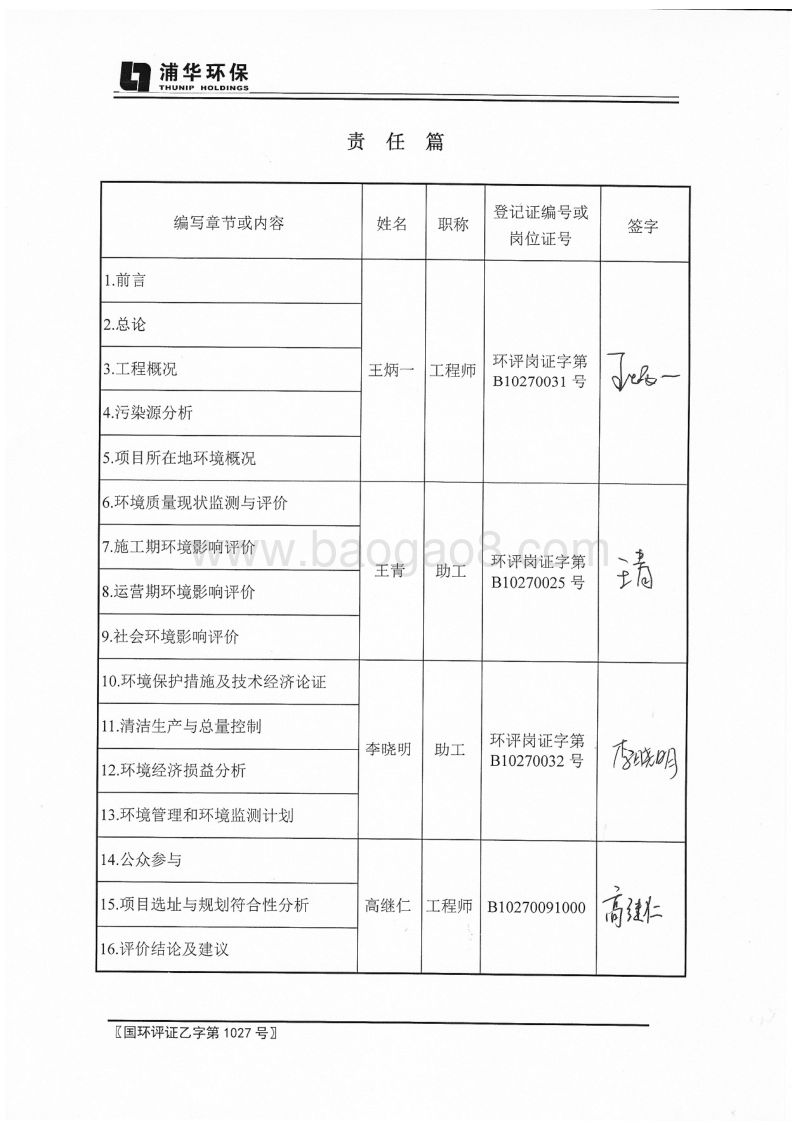 浦华环保
THUNIP HOLDINGS
责 任 篇
编写章节或内容
姓名
职称
登记证编号或
岗位证号
签字
1.前言
2.总论
3.工程概况
4.污染源分析
5.项目所在地环境概况
王炳一
工程师
环评岗证字第
B10270031 号
王炳一
6.环境质量现状监测与评价
7.施工期环境影响评价
8.运营期环境影响评价
9.社会环境影响评价
王青
助工
环评岗证字第
B10270025 号
王青
www.baogao8.com
10.环境保护措施及技术经济论证
11.清洁生产与总量控制
12.环境经济损益分析
13.环境管理和环境监测计划
李晓明
助工
环评岗证字第
B10270032 号
李晓明
14.公众参与
15.项目选址与规划符合性分析
16.评价结论及建议
高继仁
工程师
B10270091000
高继仁
〖国环评证乙字第 1027 号〗